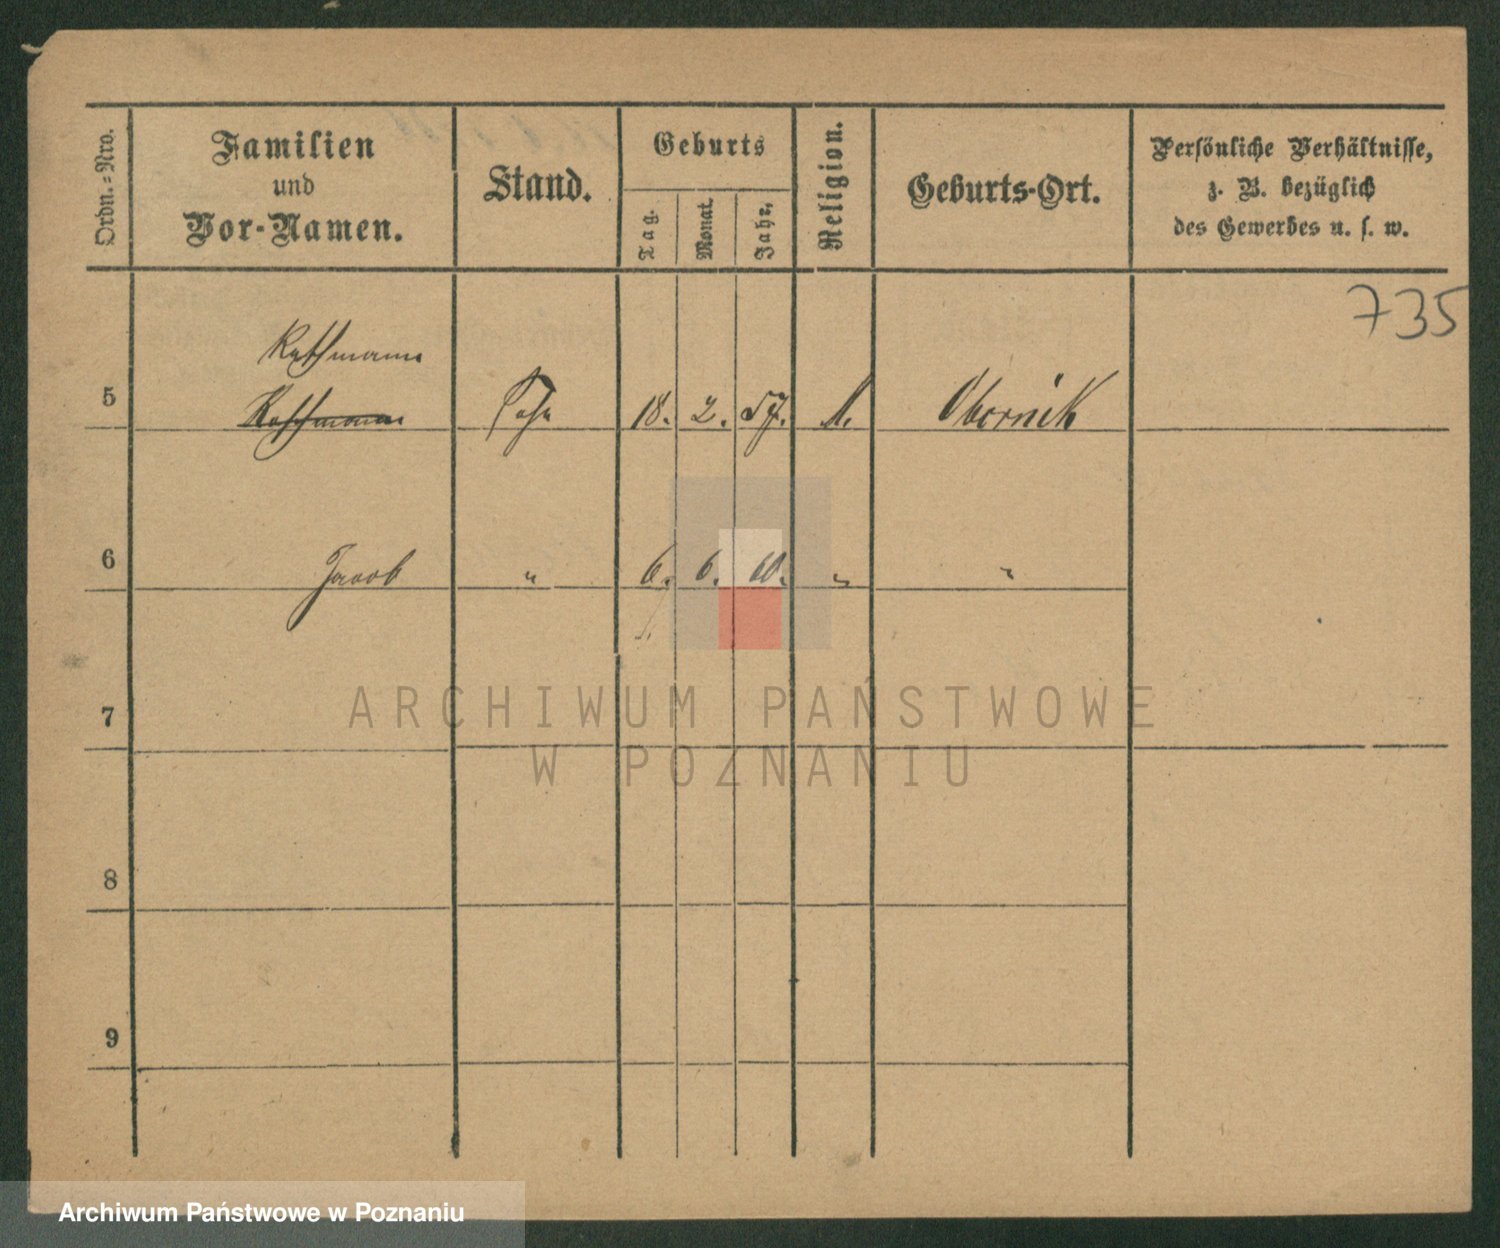 Ordn.-Nro.
Familien
und
Vor-Namen.
Stand.
Geburts
Tag.
Monat.
Jahr,
Religion.
Geburts-Ort.
Persönliche Verhältnisse,
z. B. bezüglich
des Gewerbes u. s. w.
735
5 18. 2. 57. Obornik
6 Jacob " 6. 6. 60. " "
7
ARCHIWUM PAŃSTWOWE
W POZNANIU
8
9
Archiwum Państwowe w Poznaniu